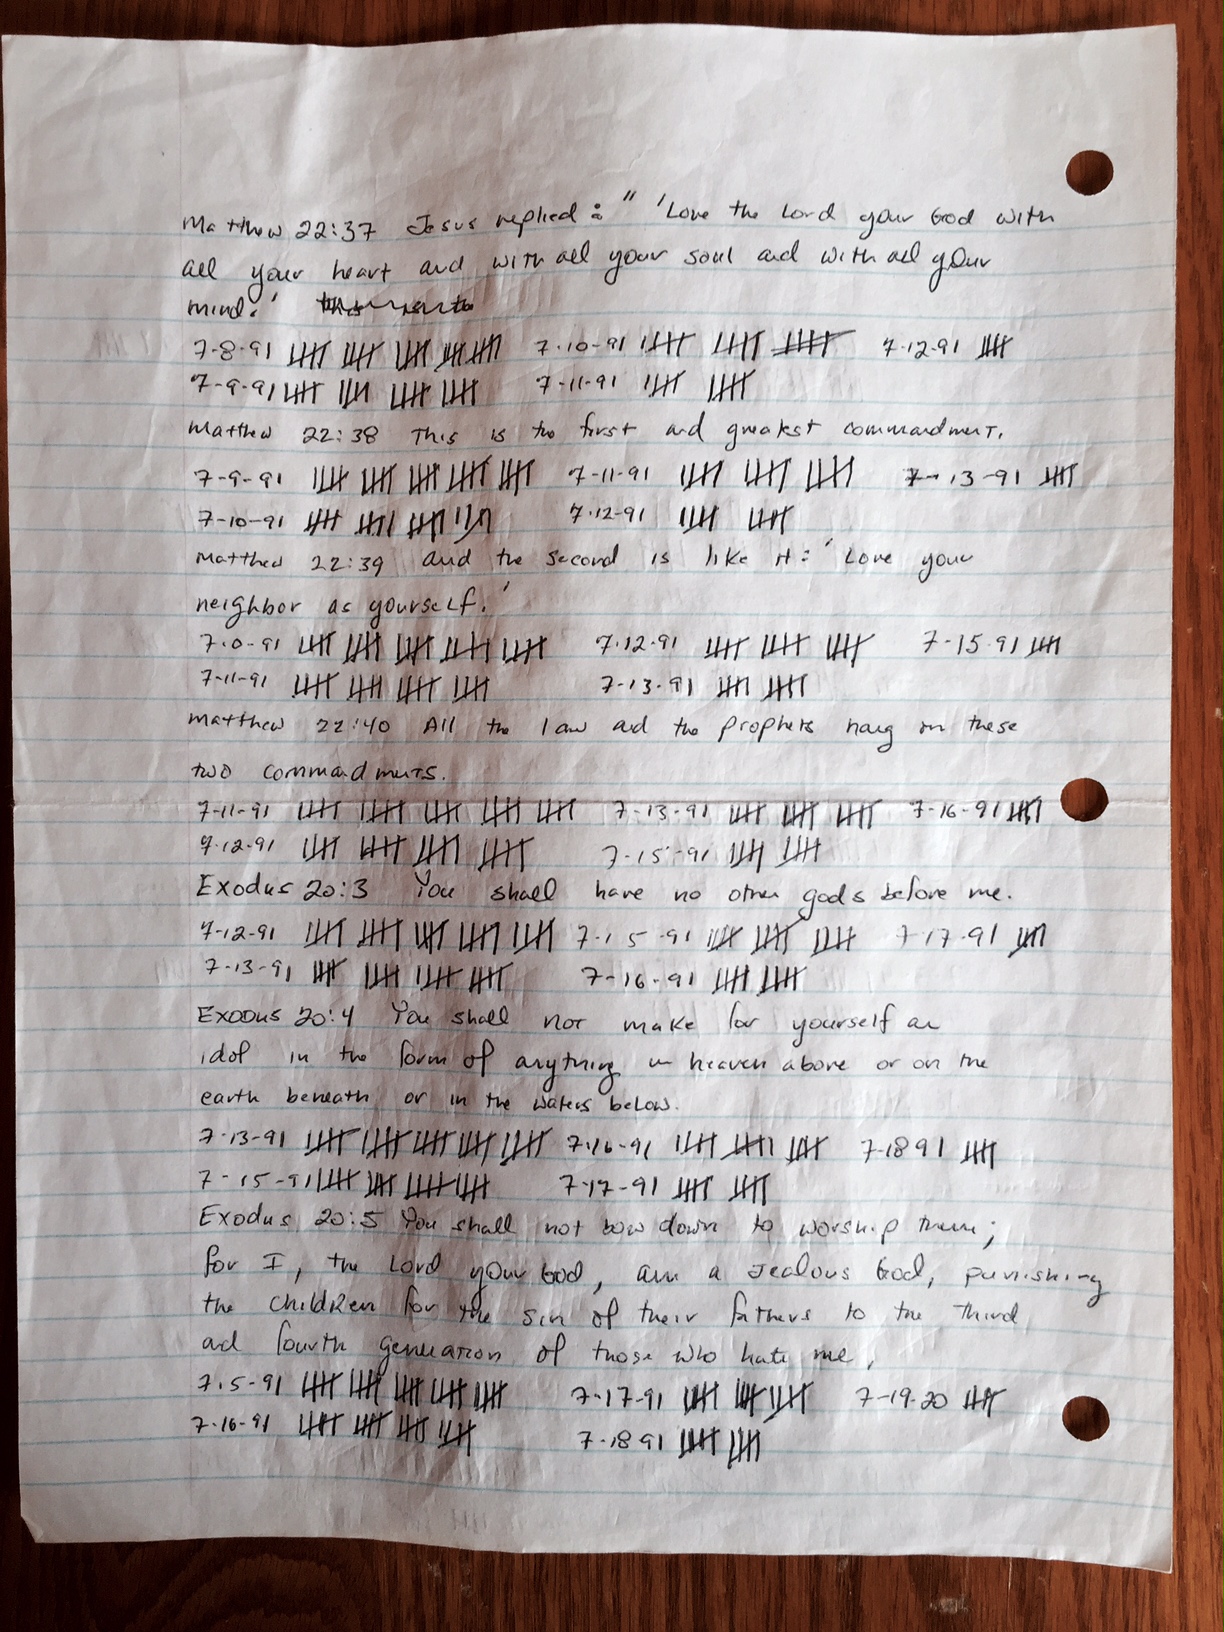 Matthew 22:37 Jesus replied: " 'Love the Lord your God with
all your heart and with all your soul and with all your
mind.'
7-8-91 7-10-91 7-12-91
7-9-91 7-11-91
Matthew 22:38 This is the first and greatest commandment.
7-9-91 7-11-91 7-13-91
7-10-91 7-12-91
Matthew 22:39 and the second is like it: 'Love your
neighbor as yourself.'
7-0-91 7-12-91 7-15-91
7-11-91 7-13-91
Matthew 22:40 All the law and the prophets hang on these
two commandments.
7-11-91 7-13-91 7-16-91
7-12-91 7-15-91
Exodus 20:3 You shall have no other gods before me.
7-12-91 7-15-91 7-17-91
7-13-91 7-16-91
Exodus 20:4 You shall not make for yourself an
idol in the form of anything in heaven above or on the
earth beneath or in the waters below.
7-13-91 7-16-91 7-18 91
7-15-91 7-17-91
Exodus 20:5 You shall not bow down to worship them;
for I, the Lord your God, am a Jealous God, punishing
the children for the sin of their fathers to the third
and fourth generation of those who hate me,
7-5-91 7-17-91 7-19-20
7-16-91 7-18 91